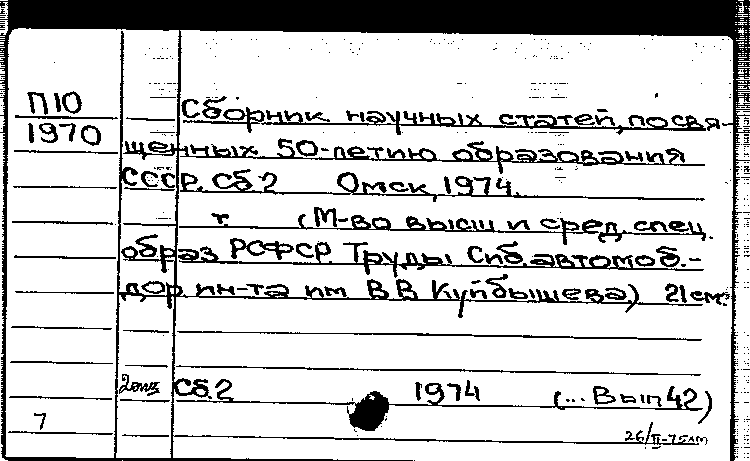 П10
1970
Сборник научных статей, посвя-
щенных 50-летию образования
СССР. Сб 2 Омск, 1974.
т. (М-во высш и сред. спец.
образ РСФСР. Труды Сиб. автомоб.-
дор. ин-та им В В Куйбышева) 21 см.
2 экз Сб. 2 1974 (... Вып 42)
7
26/II-75